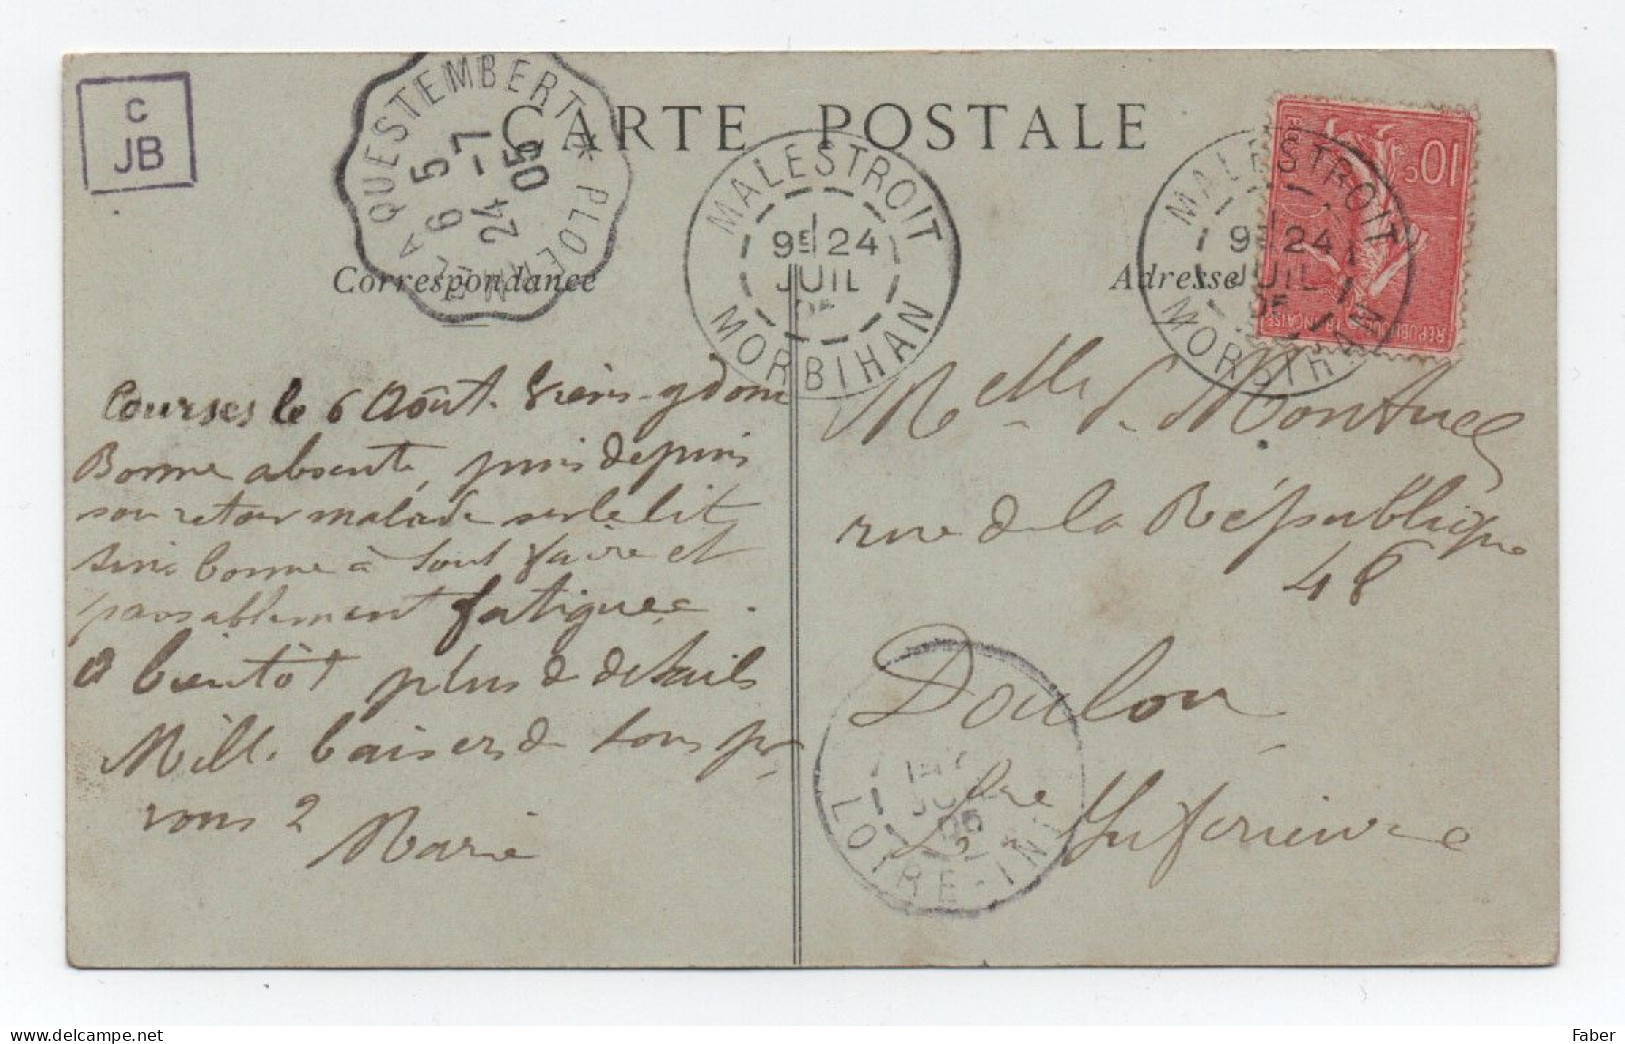 C
JB
QUESTEMBERT * PLOERMEL A
6 5
24 -7
05
CARTE POSTALE
MALESTROIT
9E 24
JUIL
05
MORBIHAN
MALESTROIT
9E 24
JUIL
05
MORBIHAN
10c
REPUBLIQUE FRANÇAISE
Correspondance
Adresse
Courses le 6 Août.
Bonne absente, puis depuis
son retour malade sur le lit
suis bonne à tout faire et
passablement fatiguée.
A bientôt plus de détails
Mille baisers de tous pr
vous 2
Marie
Melle
rue de la République
48
Doulon
Lre Inférieure
LOIRE-INF
faber